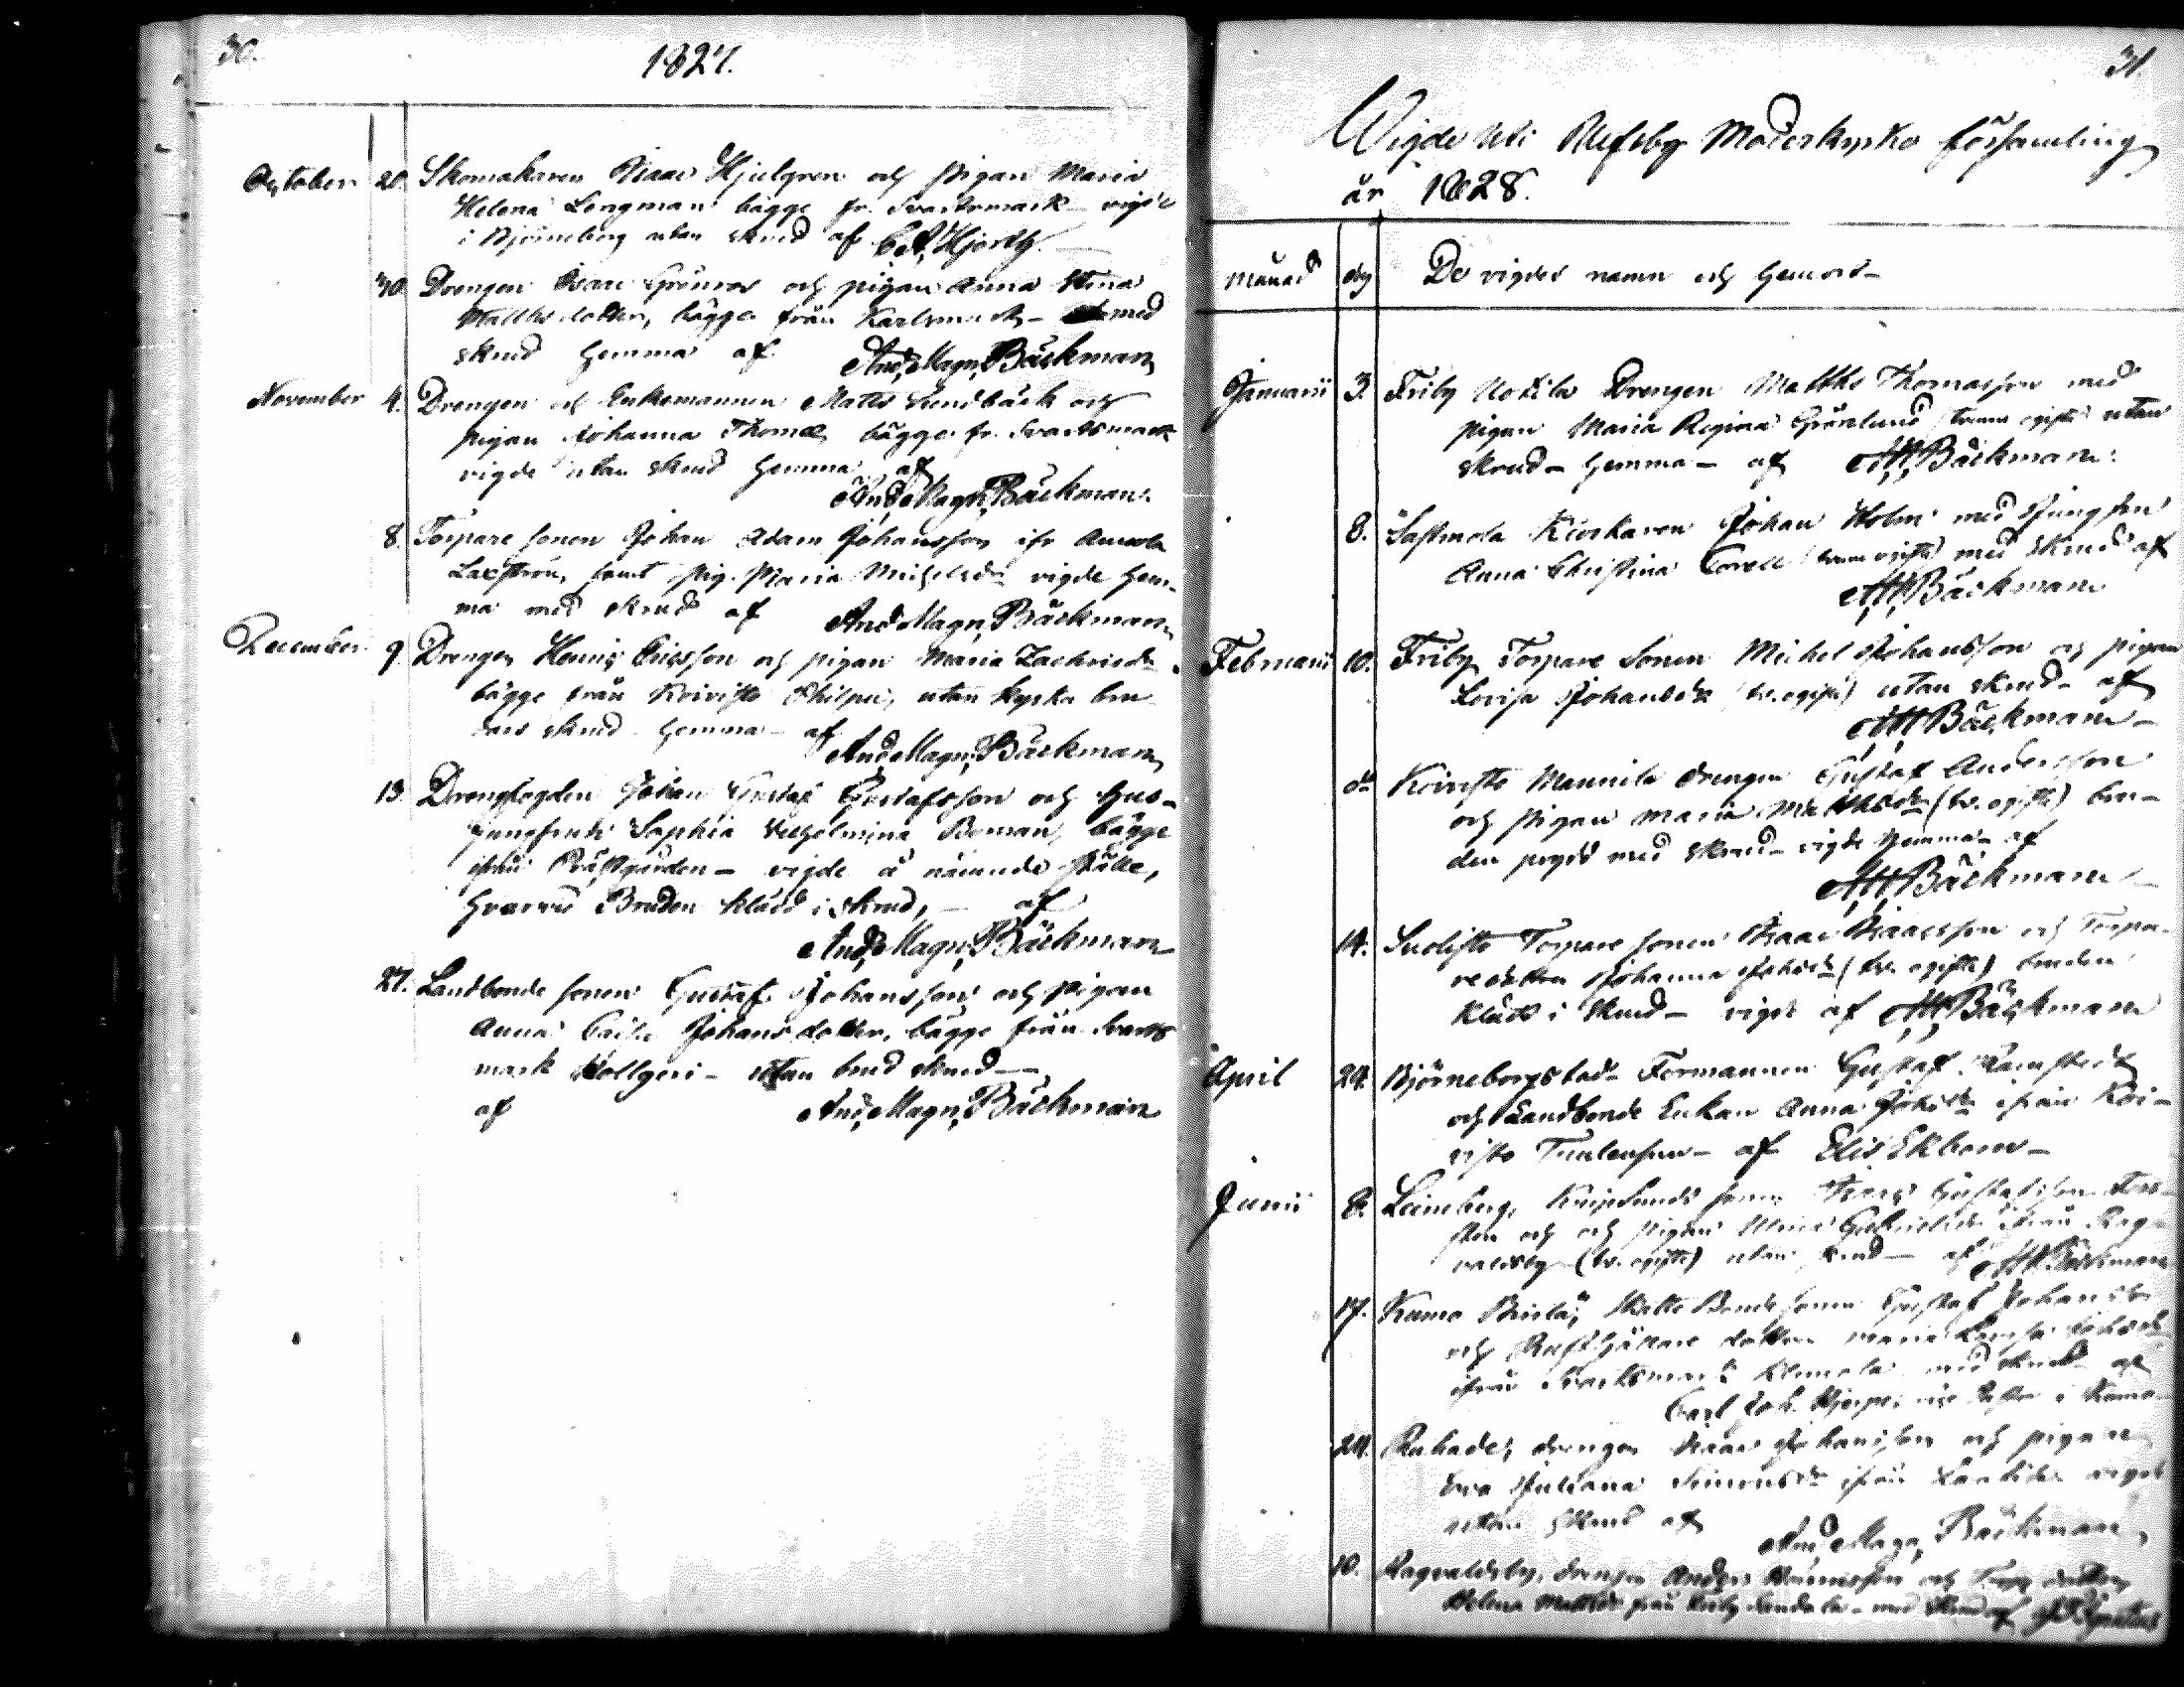 30.
1827.
October 20. Skomakaren Isaac Hjulgren och Pigan Maria
Helena Lengman bägge fr. Svartsmark vigde
i Björneborg utan skrud af C. A. Hjorth.
30. Drengen Isaac Grönroos och pigan Anna Stina
Matthsdotter, bägge från Karlsmark - med
skrud hemma af And. Magn. Bäckman
November 4. Drengen och Enkemannen Matts Sundbäck och
pigan Johanna Thomæ, bägge fr. Svartsmark
vigde utan skrud hemma af
And. Magn. Bäckman.
8. Torpare sonen Johan Adam Johansson ifr Annola
Laxström, samt pig. Maria Michelsdr vigde hem-
ma med skrud af And. Magn. Bäckman
December 9. Drengen Henric Ericsson och pigan Maria Zachrisdr
bägge från Koivisto Philpu, utan kyrko bru-
dars skrud hemma - af
And. Magn. Bäckman
13. Drengfogden Johan Gustaf Gustafsson och Hus-
jungfrun Sophia Vilhelmina Boman, bägge
ifrån Prästgården - vigde å nämnde ställe,
hvarvid Bruden klädd i skrud, - af
And. Magn. Bäckman
27. Landbonde sonen Gustaf Johansson och pigan
Anna Caisa Johansdotter, bägge från Svarts
mark - utan brud skrud -
af And. Magn. Bäckman
31.
Wigde uti Ulfsby Moderkyrko församling
år 1828.
Månad dag De vigdes namn och hemvist
Januarii 3. Friby Uotila Drengen Matths Thomasson med
pigan Maria Regina Grönlund (tvenne ogifte) utan
skrud - hemma - af A. M. Bäckman.
8. Sastmola Kyrkaren Johan Holm med Jungfrun
Anna Christina Corell (tvenne ogifte) med skrud af
A. M. Bäckman
Februarii 10. Friby Torpare Sonen Michel Johansson och pigan
Lovisa Johansdr (tv. ogifte) utan skrud - af
A. M. Bäckman -
do Koivisto Mannila drengen Gustaf Andersson
och pigan Maria Matthsdr (tv. ogifte) bru-
den prydd med skrud - vigde hemma - af
A. M. Bäckman -
14. Suolisto Torpare sonen Isaac Isaacsson och Torpa-
re dottren Johanna Johsdr (tv. ogifte) bruden
klädd i skrud - vigde af A. M. Bäckman
April 24. Björneborgs stads Formannen Gustaf
och Landbonde Enkan Anna Johsdr ifrån Koi-
visto - af Elis Ekbom -
Junii 8. Leineberg, sonen Gustafsson
och pigan från Rag-
valdsby (tv. ogifte) utan skrud - af A. M. Bäckman
17. Kumo Bonde sonen Gustaf Johansson
och dottren Maria Lovisa Johsdr
ifrån Svartsmark med skrud af
Carl Joh. i Kumo
24. drengen Isaac Johansson och pigan
Eva Juliana Simonsdr ifrån vigde
utan skrud af And. Magn. Bäckman
10. Ragvaldsby, drengen Anders och dottren
Helena Matthsdr från Friby - med skrud af